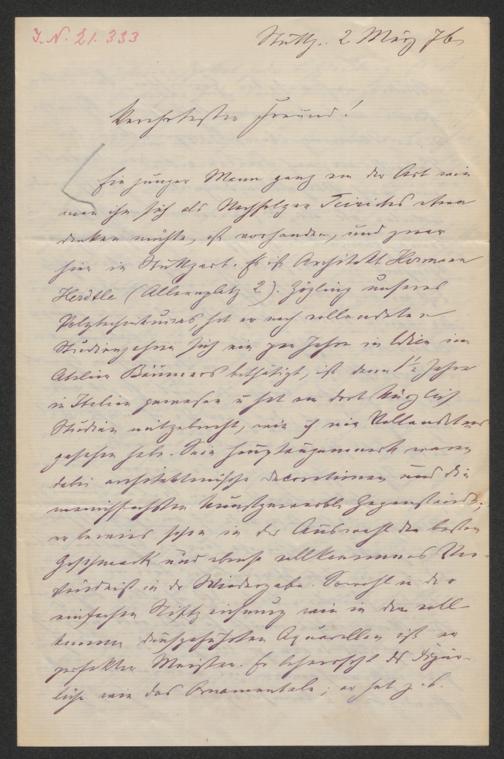 J. N. 21.333
Stuttg. 2 März 76
Verehrtester Freund!
Ein junger Mann ganz von der Art wie
man ihn sich als Nachfolger Teirichs etwa
denken möchte, ist vorhanden, und zwar
hier in Stuttgart. Es ist Architekt Hermann
Herdtle (Alleenplatz 2). Zögling unseres
Polytechnikums hat er nach vollendeten
Studienjahren sich ein paar Jahre in Wien im
Atelier Bäumers bethätigt, ist dann 1½ Jahre
in Italien gewesen u hat von dort kürzlich
Studien mitgebracht, wie ich nie Vollendeteres
gesehen habe. Sein Hauptaugenmerk waren
dabei architektonische Decorationen und die
mannichfachsten kunstgewerbl. Gegenstände;
er bewies schon in der Auswahl den besten
Geschmack und ebenso vollkommenes Ver-
ständniß in der Wiedergabe. Sowohl in der
einfachen Stiftzeichnung wie in den voll
kommen durchgeführten Aquarellen ist er
perfekter Meister. Er beherrscht das Figür-
liche wie das Ornamentale; er hat z. b.